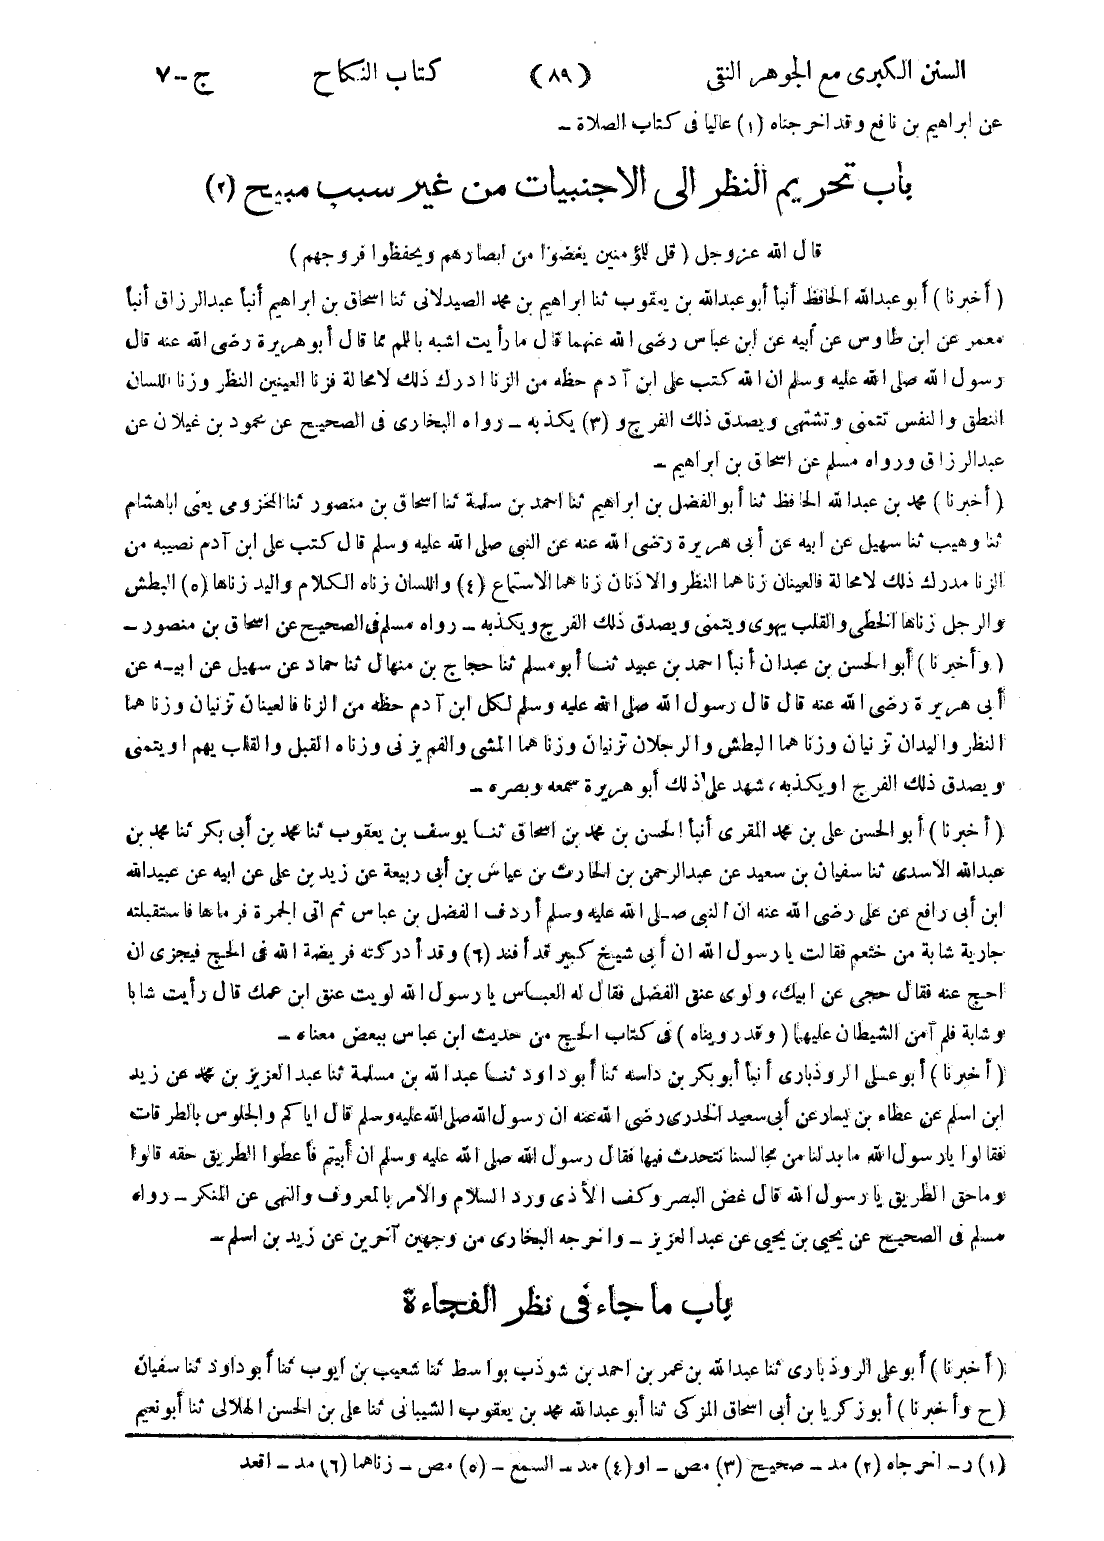 السنن الكبرى مع الجوهر النقى (٨٩) كتاب النكاح ج-٧
عن ابراهيم بن نافع وقد اخرجناه (١) عاليا فى كتاب الصلاة -
باب تحريم النظر الى الاجنبيات من غير سبب مبيح (٢)
قال الله عزوجل ( قل للمؤمنين يغضوا من ابصارهم ويحفظوا فروجهم )
( أخبرنا ) أبو عبدالله الحافظ أنبأ أبو عبدالله بن يعقوب ثنا ابراهيم بن محمد الصيدلانى ثنا اسحاق بن ابراهيم أنبأ عبدالرزاق أنبأ
معمر عن ابن طاوس عن أبيه عن ابن عباس رضى الله عنهما قال ما رأيت اشبه باللم مما قال أبو هريرة رضى الله عنه قال
رسول الله صلى الله عليه وسلم ان الله كتب على ابن آدم حظه من الزنا ادرك ذلك لامحالة فزنا العينين النظر وزنا اللسان
النطق والنفس تتمنى وتشتهى ويصدق ذلك الفرج و (٣) يكذبه - رواه البخارى فى الصحيح عن محمود بن غيلان عن
عبدالرزاق ورواه مسلم عن اسحاق بن ابراهيم -
( أخبرنا ) محمد بن عبدالله الحافظ ثنا أبو الفضل بن ابراهيم ثنا احمد بن سلمة ثنا اسحاق بن منصور ثنا المخزومى يعنى اباهشام
ثنا وهيب ثنا سهيل عن ابيه عن أبى هريرة رضى الله عنه عن النبى صلى الله عليه وسلم قال كتب على ابن آدم نصيبه من
الزنا مدرك ذلك لامحالة فالعينان زناهما النظر والاذنان زناهما الاستماع (٤) واللسان زناه الكلام واليد زناها (٥) البطش
والرجل زناها الخطى والقلب يهوى ويتمنى ويصدق ذلك الفرج ويكذبه - رواه مسلم فى الصحيح عن اسحاق بن منصور -
( وأخبرنا ) أبو الحسن بن عبدان أنبأ احمد بن عبيد ثنا أبو مسلم ثنا حجاج بن منهال ثنا حماد عن سهيل عن ابيه عن
أبى هريرة رضى الله عنه قال قال رسول الله صلى الله عليه وسلم لكل ابن آدم حظه من الزنا فالعينان تزنيان وزناهما
النظر واليدان تزنيان وزناهما البطش والرجلان تزنيان وزناهما المشى والفم يزنى وزناه القبل والقلب يهم او يتمنى
ويصدق ذلك الفرج او يكذبه، شهد على ذلك أبو هريرة سمعه وبصره -
( أخبرنا ) أبو الحسن على بن محمد المقرى أنبأ الحسن بن محمد بن اسحاق ثنا يوسف بن يعقوب ثنا محمد بن أبى بكر ثنا محمد بن
عبدالله الاسدى ثنا سفيان بن سعيد عن عبدالرحمن بن الحارث بن عياش بن أبى ربيعة عن زيد بن على عن ابيه عن عبيدالله
ابن أبى رافع عن على رضى الله عنه ان النبى صلى الله عليه وسلم أردف الفضل بن عباس ثم اتى الجمرة فرماها فاستقبلته
جارية شابة من خثعم فقالت يا رسول الله ان أبى شيخ كبير قد أفند (٦) وقد أدركته فريضة الله فى الحج فيجزى ان
احج عنه فقال حجى عن ابيك، ولوى عنق الفضل فقال له العباس يا رسول الله لويت عنق ابن عمك قال رأيت شابا
وشابة فلم آمن الشيطان عليهما ( وقد رويناه ) فى كتاب الحج من حديث ابن عباس ببعض معناه -
( أخبرنا ) أبو على الروذبارى أنبأ أبو بكر بن داسه ثنا أبو داود ثنا عبدالله بن مسلمة ثنا عبدالعزيز بن محمد عن زيد
ابن اسلم عن عطاء بن يسار عن أبى سعيد الخدرى رضى الله عنه ان رسول الله صلى الله عليه وسلم قال اياكم والجلوس بالطرقات
فقالوا يارسول الله ما بد لنا من مجالسنا نتحدث فيها فقال رسول الله صلى الله عليه وسلم ان أبيتم فأعطوا الطريق حقه قالوا
وماحق الطريق يا رسول الله قال غض البصر وكف الأذى ورد السلام والامر بالمعروف والنهى عن المنكر - رواه
مسلم فى الصحيح عن يحيى بن يحيى عن عبدالعزيز - واخرجه البخارى من وجهين آخرين عن زيد بن اسلم -
باب ما جاء فى نظر الفجاءة
( أخبرنا ) أبو على الروذبارى ثنا عبدالله بن عمر بن احمد بن شوذب بواسط ثنا شعيب بن ايوب ثنا أبو داود ثنا سفيان
( ح وأخبرنا ) أبو زكريا بن أبى اسحاق المزكى ثنا أبو عبدالله محمد بن يعقوب الشيبانى ثنا على بن الحسن الهلالى ثنا أبو نعيم
(١) ر- اخرجاه (٢) مد - صحيح (٣) مص - او (٤) مد - السمع - (٥) مص - زناهما (٦) مد - اقعد